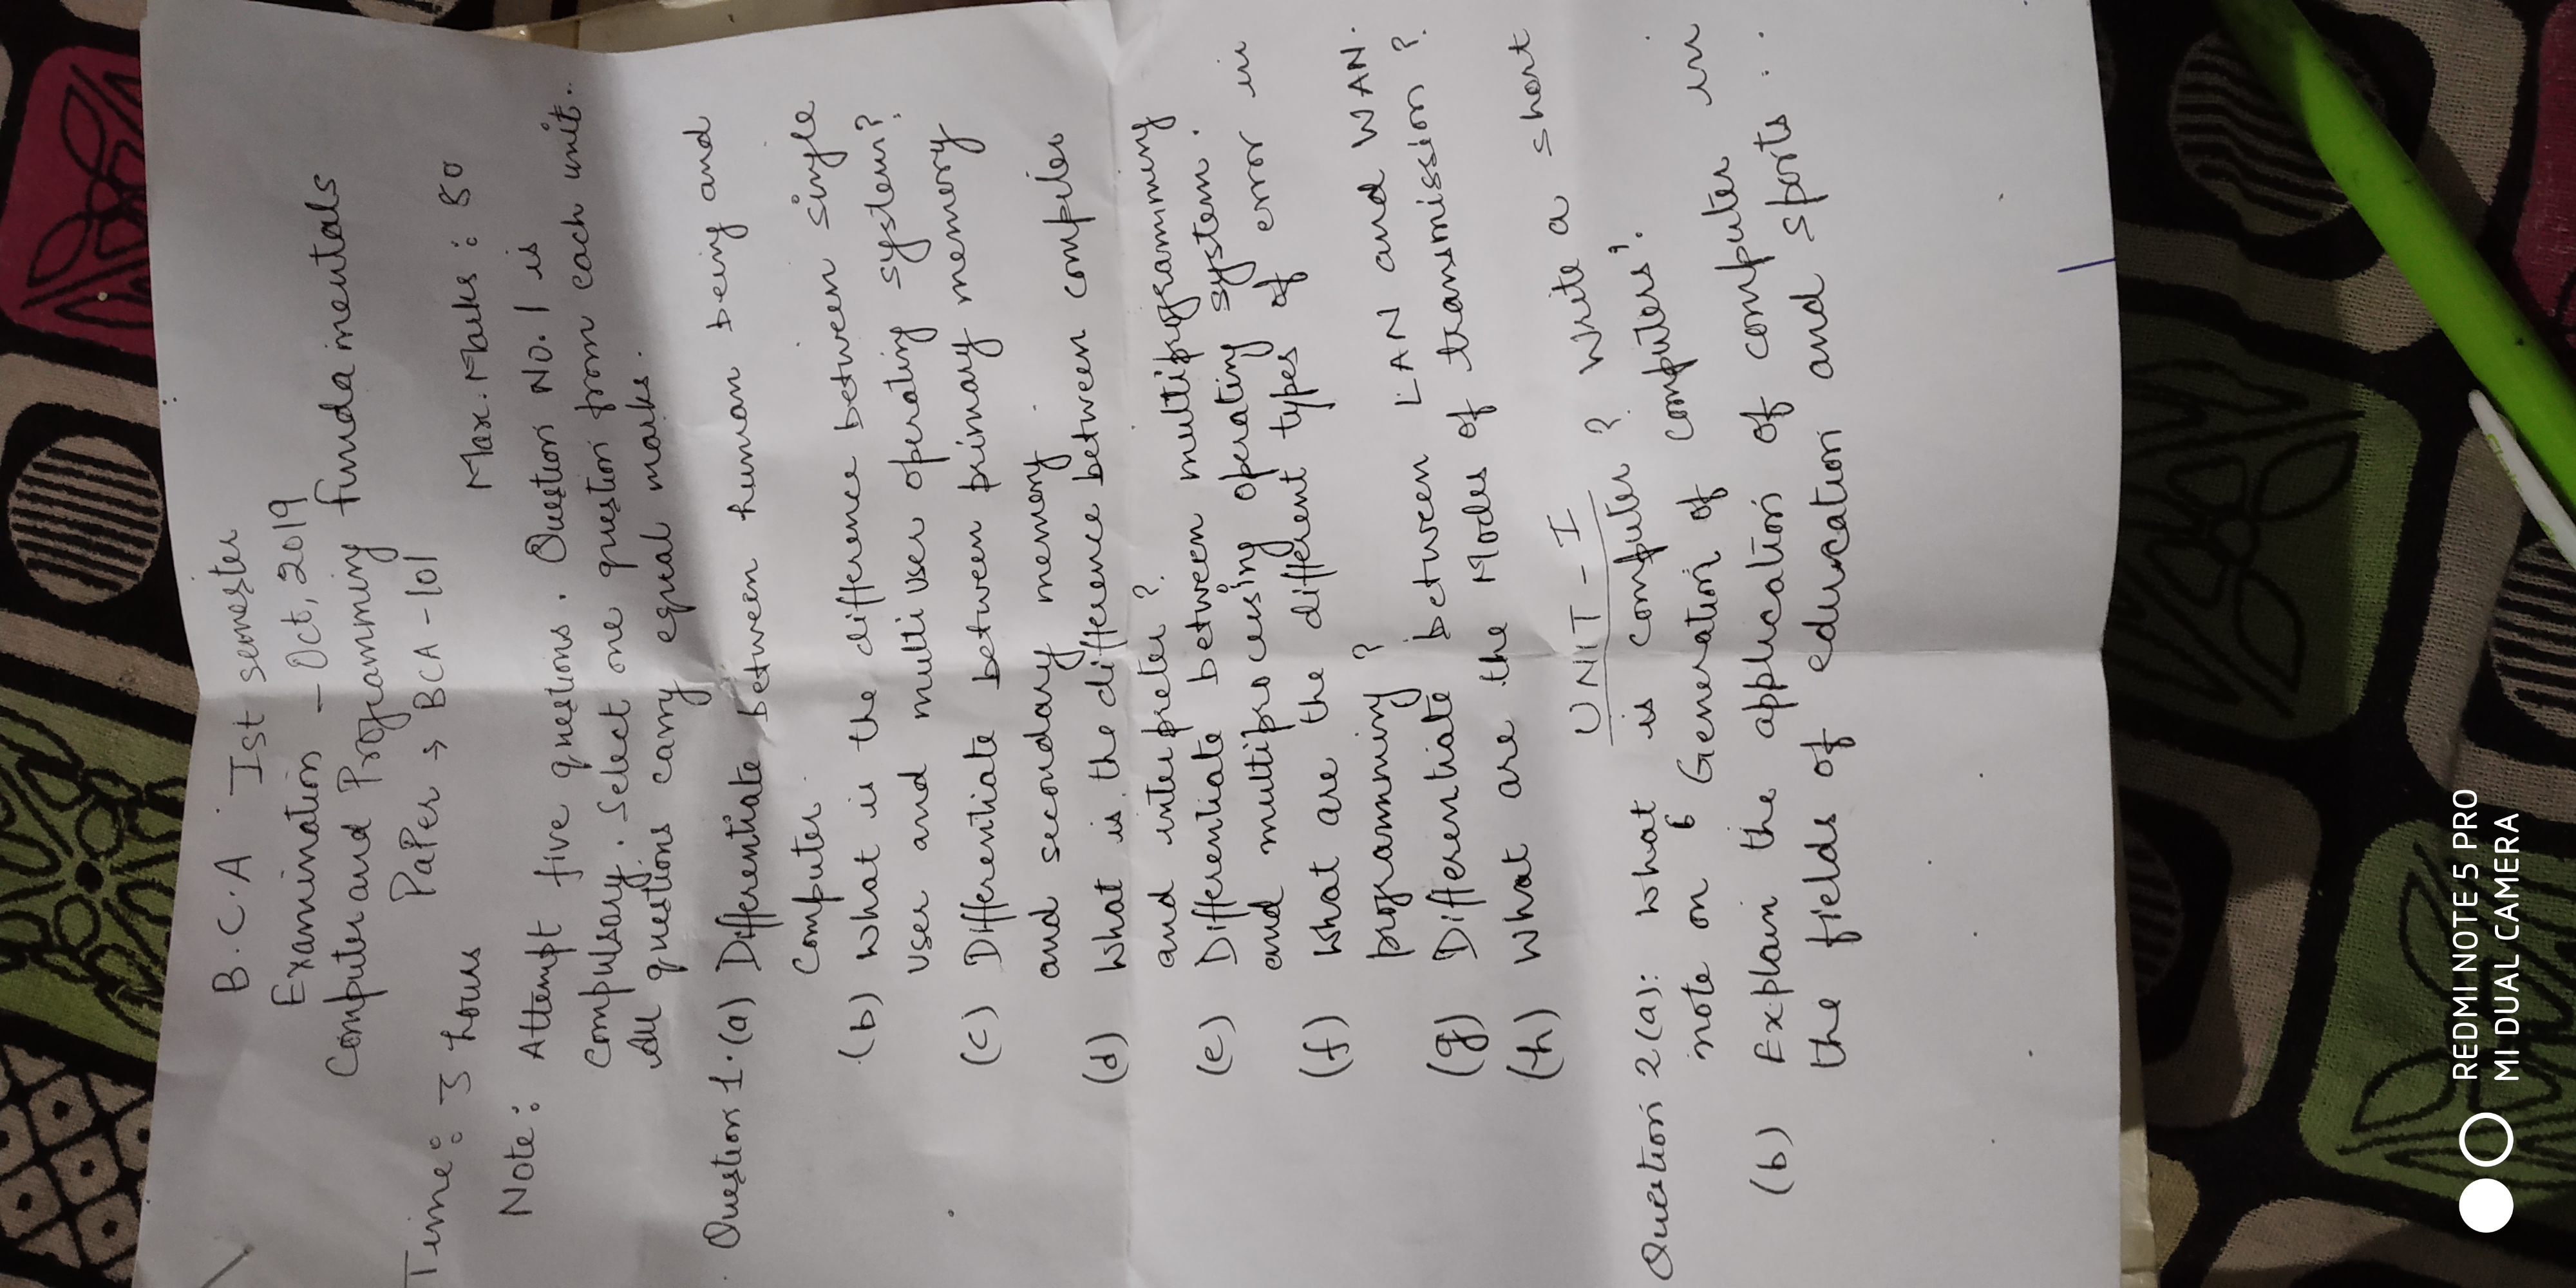 B.C.A Ist semester
Examination - Oct, 2019
Computer and Programming fundamentals
Paper → BCA - 101
Time: 3 hours
Max. Marks : 80
Note: Attempt five questions. Question No. 1 is
compulsory. Select one question from each unit.
All questions carry equal marks.
Question 1. (a) Differentiate between human being and
computer.
(b) What is the difference between single
user and multi user operating system?
(c) Differentiate between primary memory
and secondary memory.
(d) What is the difference between compiler
and interpreter?
(e) Differentiate between multiprogramming
and multiprocessing operating system.
(f) What are the different types of error in
programming?
(g) Differentiate between LAN and WAN.
(h) What are the Modes of transmission?
UNIT - I
Question 2(a): What is computer? Write a short
note on ‘Generation of computers’.
(b) Explain the application of computer in
the fields of education and sports.
REDMI NOTE 5 PRO
MI DUAL CAMERA